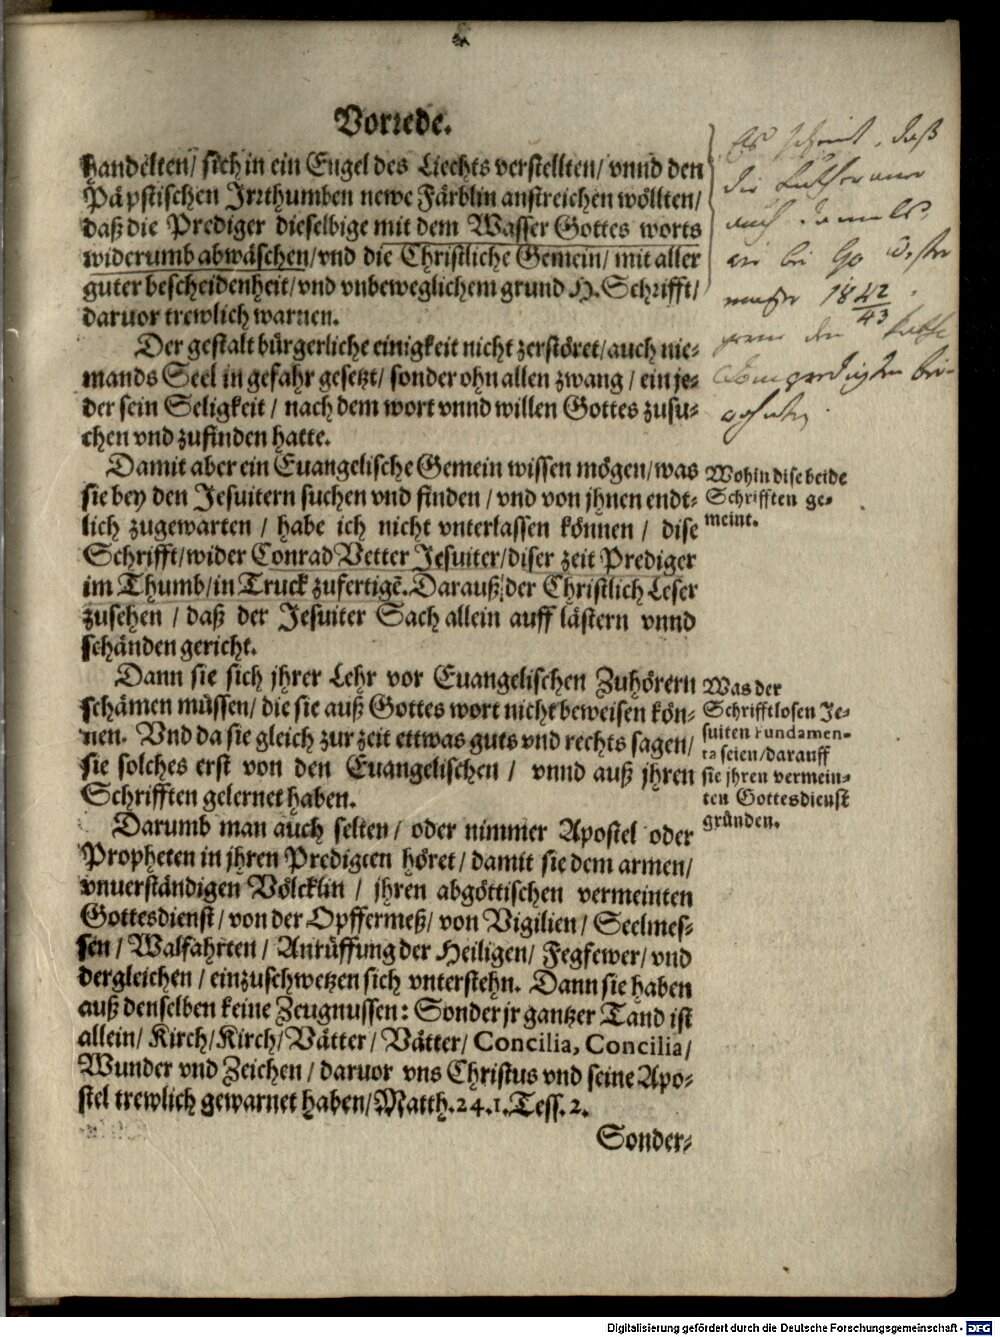 Vorrede.
handelten/ sich in ein Engel des Liechts verstellten/ vnnd den
Päpstischen Irrthumben newe Färblin anstreichen wöllten/
daß die Prediger dieselbige mit dem Wasser Gottes worts
widerumb abwäschen/vnd die Christliche Gemein/ mit aller
guter bescheidenheit/vnd vnbeweglichem grund H. Schrifft/
daruor trewlich warnen.
Der gestalt bürgerliche einigkeit nicht zerstöret/auch nie-
mands Seel in gefahr gesetzt/ sonder ohn allen zwang / ein je-
der sein Seligkeit / nach dem wort vnnd willen Gottes zusu-
chen vnd zufinden hatte.
Damit aber ein Euangelische Gemein wissen mögen/was
sie bey den Jesuitern suchen vnd finden / vnd von jhnen endt-
lich zugewarten / habe ich nicht vnterlassen können / dise
Schrifft/wider Conrad Vetter Jesuiter/diser zeit Prediger
im Thumb/in Truck zufertigē. Darauß der Christlich Leser
zusehen / daß der Jesuiter Sach allein auff lästern vnnd
schänden gericht.
Wohin dise beide
Schrifften ge-
meint.
Dann sie sich jhrer Lehr vor Euangelischen Zuhörern
schämen müssen/ die sie auß Gottes wort nicht beweisen kön-
nen. Vnd da sie gleich zur zeit ettwas guts vnd rechts sagen/
sie solches erst von den Euangelischen / vnnd auß jhren
Schrifften gelernet haben.
Was der
Schrifftlosen Je-
suiten Fundamen-
ta seien/darauff
sie jhren vermein-
ten Gottesdienst
gründen.
Darumb man auch selten/ oder nimmer Apostel oder
Propheten in jhren Predigten höret/ damit sie dem armen/
vnuerständigen Völcklin / jhren abgöttischen vermeinten
Gottesdienst/ von der Opffermeß/ von Vigilien/ Seelmes-
sen / Walfahrten / Anrüffung der Heiligen/ Fegfewer/ vnd
dergleichen / einzuschwetzen sich vnterstehn. Dann sie haben
auß denselben keine Zeugnussen: Sonder jr gantzer Tand ist
allein/ Kirch/ Kirch/ Vätter/ Vätter/ Concilia, Concilia/
Wunder vnd Zeichen / daruor vns Christus vnd seine Apo-
stel trewlich gewarnet haben/Matth.24.1.Tess.2.
Sonder-
Es scheint, daß
die Lutheraner
auch damals
wie bei
1842
43
den
Domprediger bei-
Digitalisierung gefördert durch die Deutsche Forschungsgemeinschaft - DFG